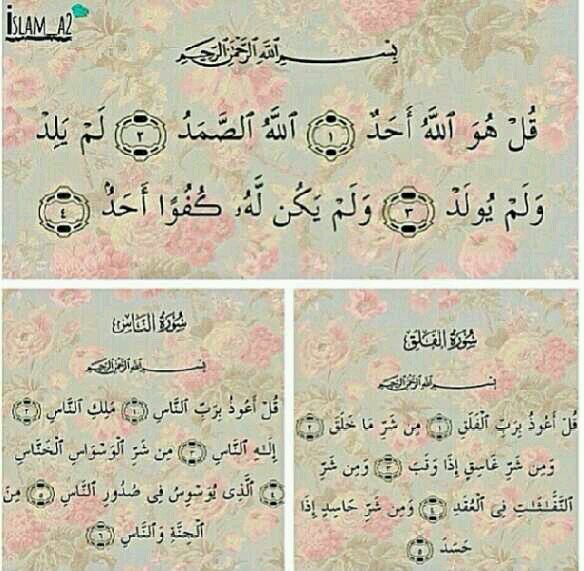 iSLAM_A2
بِسْمِ ٱللَّهِ ٱلرَّحْمَٰنِ ٱلرَّحِيمِ
قُلْ هُوَ ٱللَّهُ أَحَدٌ ١ ٱللَّهُ ٱلصَّمَدُ ٢ لَمْ يَلِدْ
وَلَمْ يُولَدْ ٣ وَلَمْ يَكُن لَّهُۥ كُفُوًا أَحَدٌۢ ٤
سُورَةُ الفَلَقِ
بِسْمِ ٱللَّهِ ٱلرَّحْمَٰنِ ٱلرَّحِيمِ
قُلْ أَعُوذُ بِرَبِّ ٱلْفَلَقِ ١ مِن شَرِّ مَا خَلَقَ ٢
وَمِن شَرِّ غَاسِقٍ إِذَا وَقَبَ ٣ وَمِن شَرِّ
ٱلنَّفَّٰثَٰتِ فِى ٱلْعُقَدِ ٤ وَمِن شَرِّ حَاسِدٍ إِذَا
حَسَدَ ٥
سُورَةُ النَّاسِ
بِسْمِ ٱللَّهِ ٱلرَّحْمَٰنِ ٱلرَّحِيمِ
قُلْ أَعُوذُ بِرَبِّ ٱلنَّاسِ ١ مَلِكِ ٱلنَّاسِ ٢
إِلَٰهِ ٱلنَّاسِ ٣ مِن شَرِّ ٱلْوَسْوَاسِ ٱلْخَنَّاسِ
٤ ٱلَّذِى يُوَسْوِسُ فِى صُدُورِ ٱلنَّاسِ ٥ مِنَ
ٱلْجِنَّةِ وَٱلنَّاسِ ٦